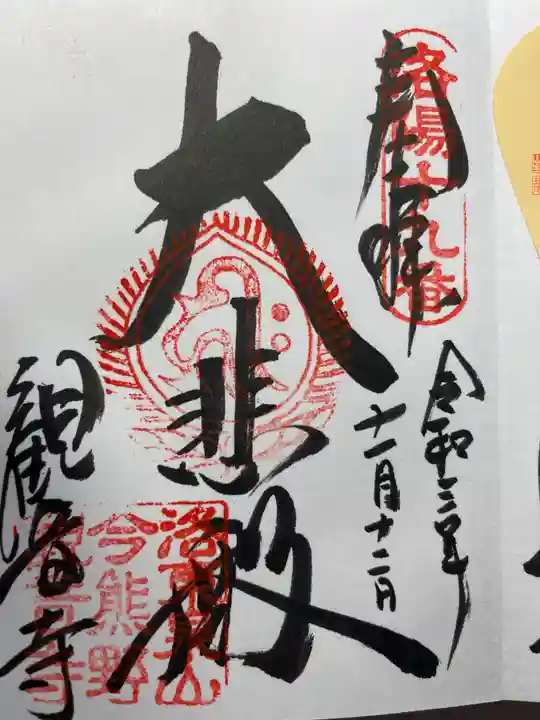 奉拝
洛陽十九番
令和三年
十一月十二日
大悲殿
観音寺
洛東泉山
今熊野
観音寺